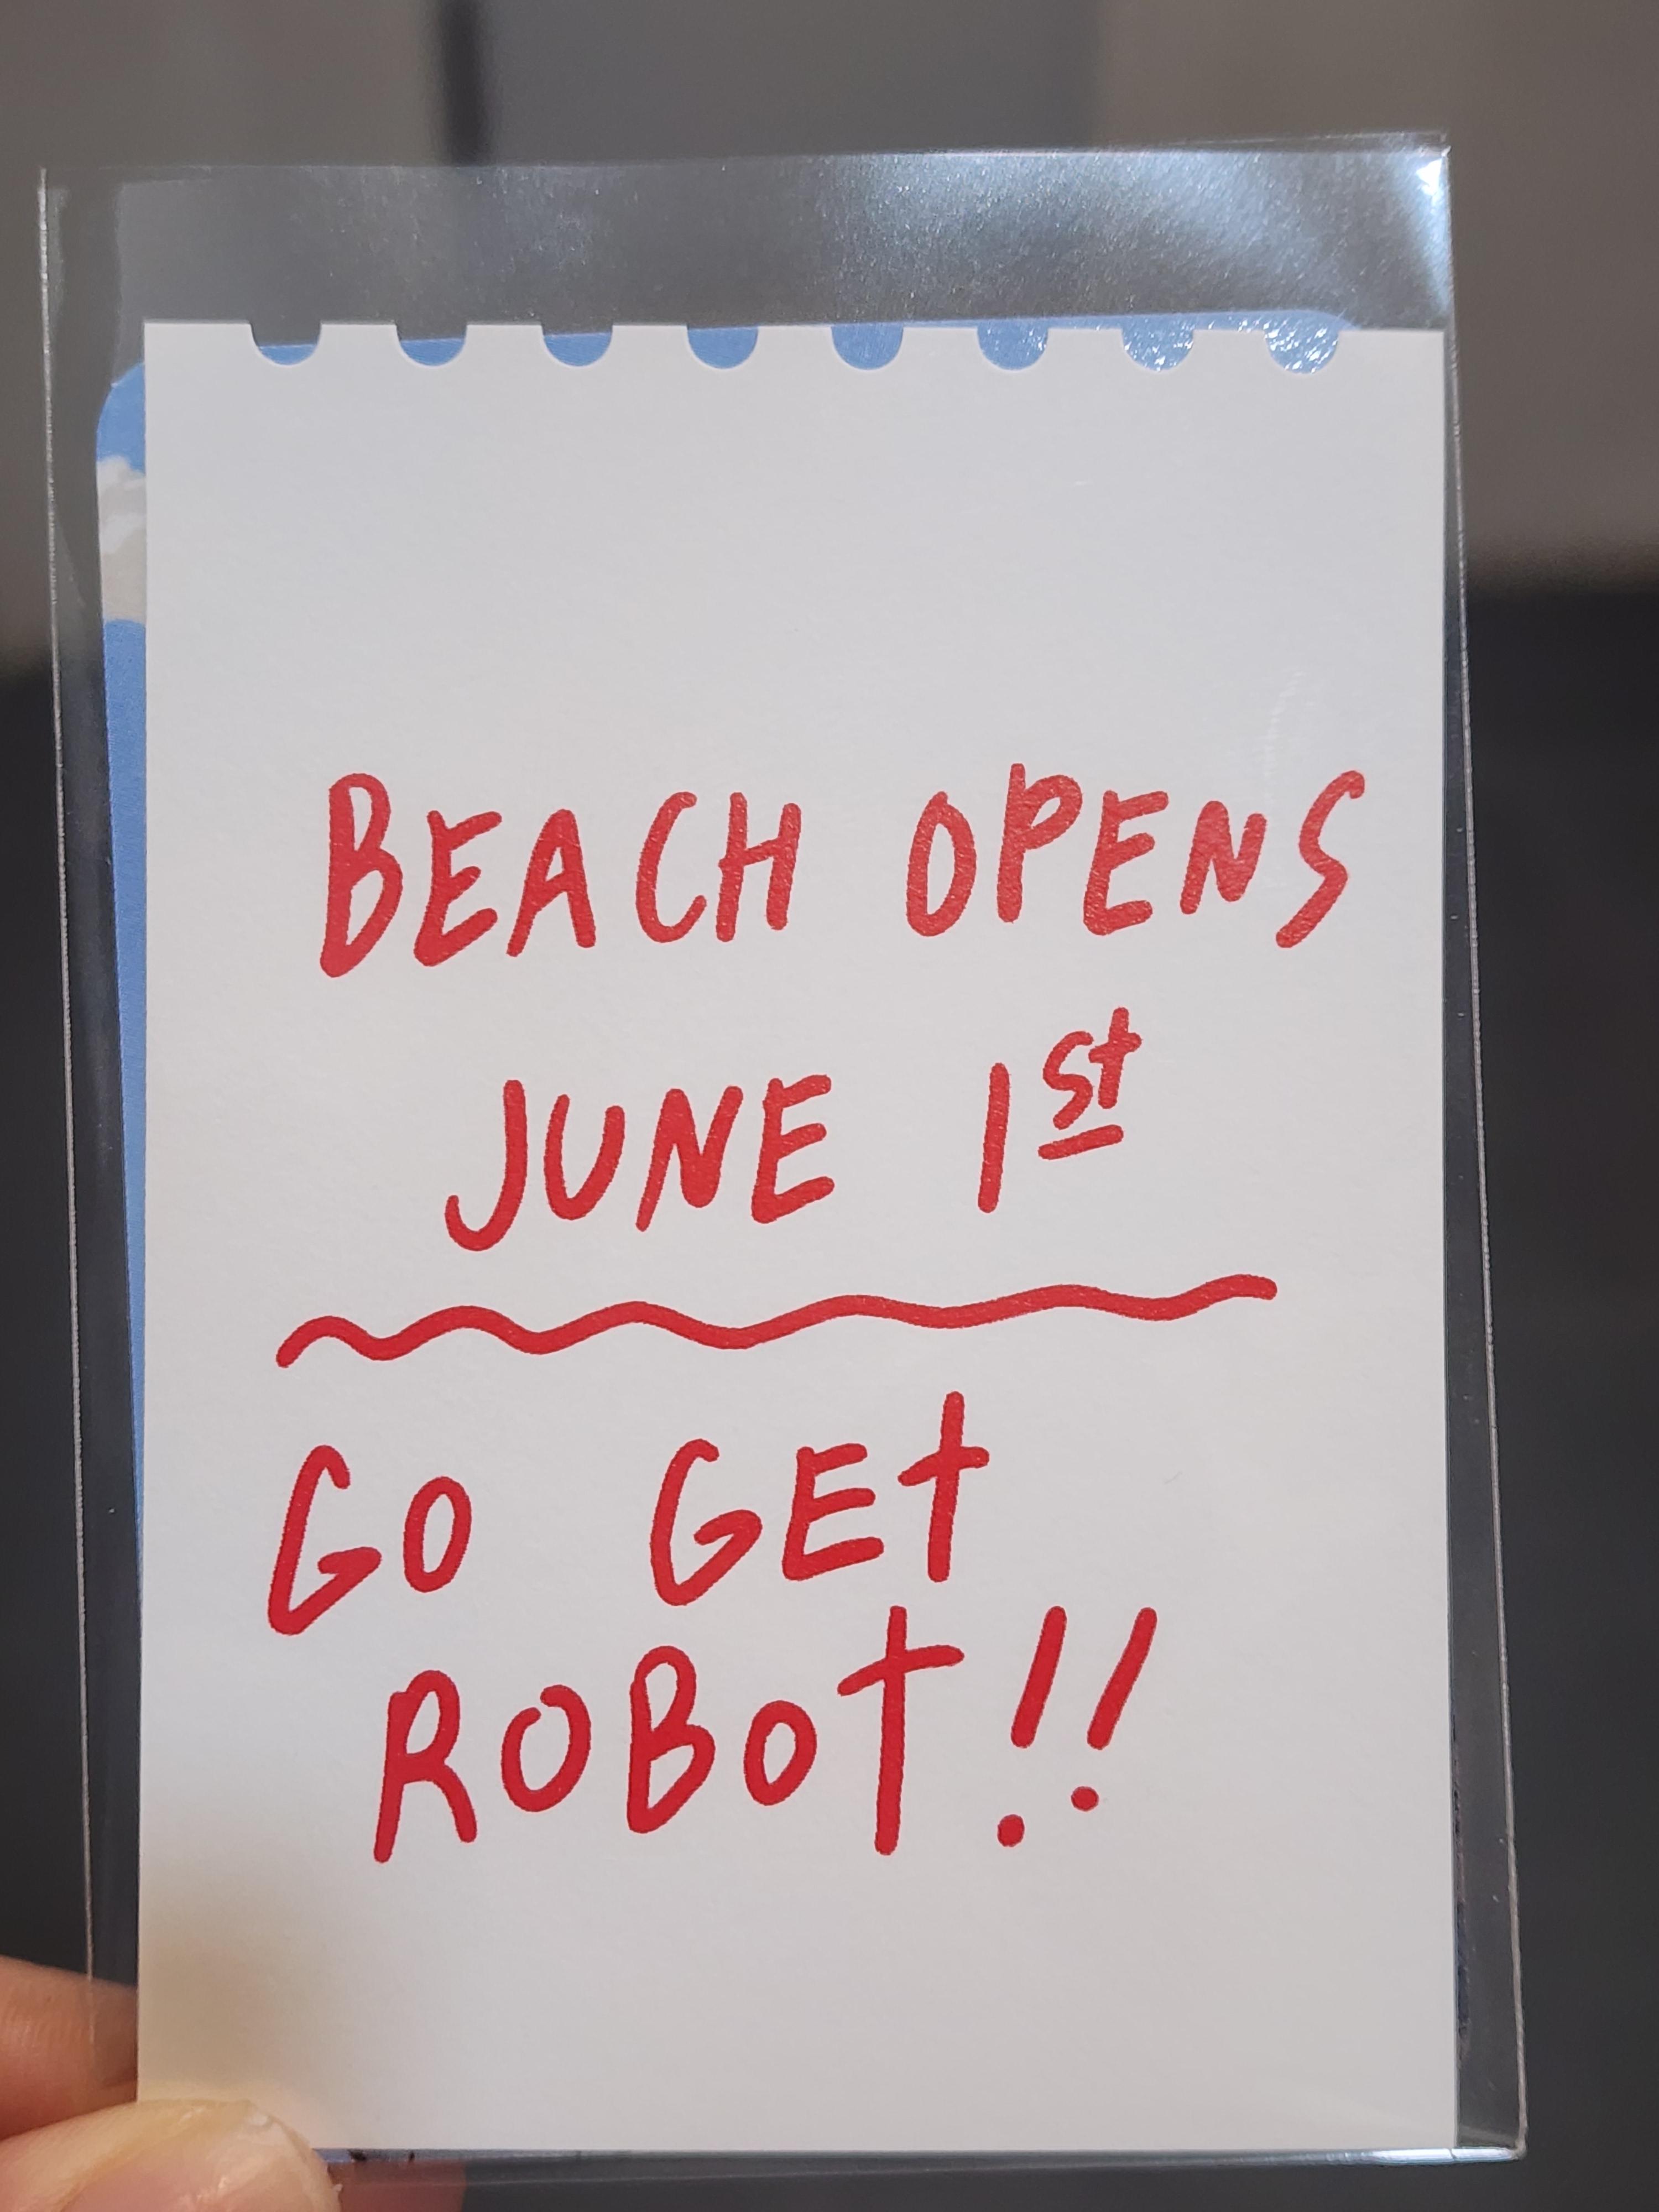 BEACH OPENS
JUNE 1st
GO GET
ROBOT!!